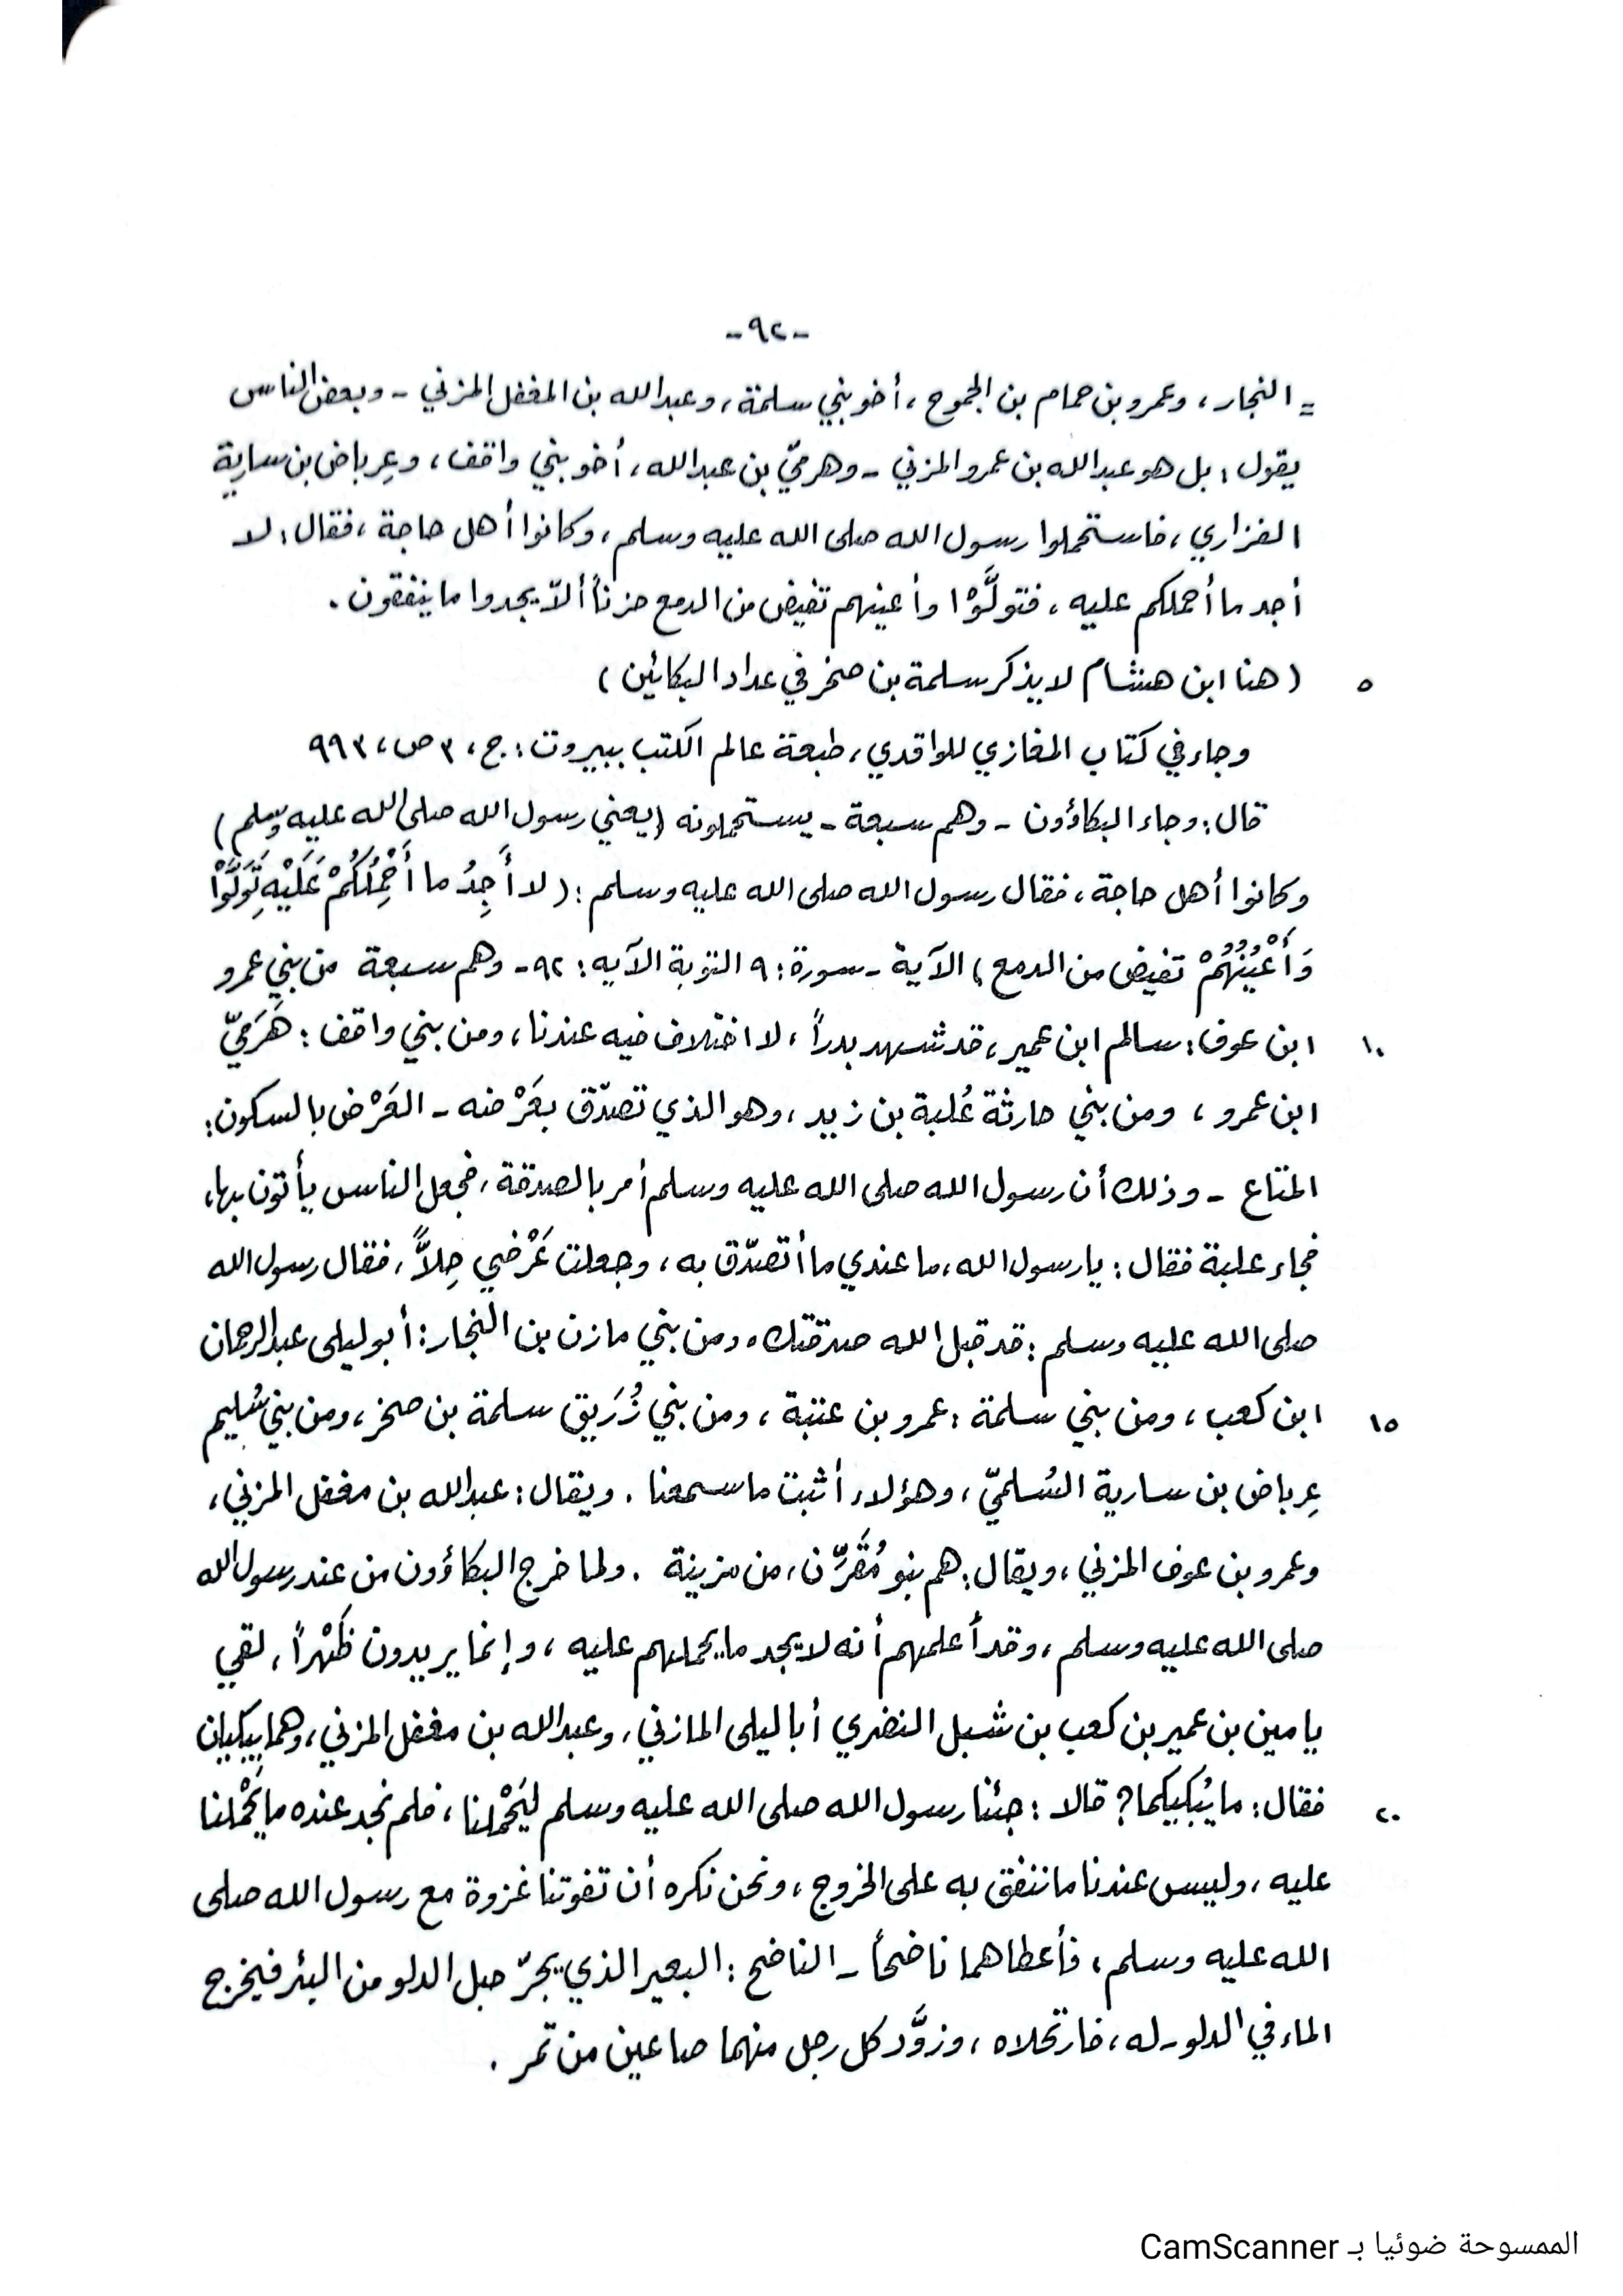 -٩٢-
= النجار، وعمرو بن حمام بن الجموح، أخو بني سلمة، وعبدالله بن المغفل المزني - وبعض الناس
يقول: بل هو عبدالله بن عمرو المزني - وهرميّ بن عبدالله، أخو بني واقف، وعِرباض بن سارية
الفزاري، فاستحملوا رسول الله صلى الله عليه وسلم، وكانوا أهل حاجة، فقال: لا
أجد ما أحملكم عليه، فتولَّوْا وأعينهم تفيض من الدمع حزناً ألاّ يجدوا ما ينفقون.
٥ (هنا ابن هشام لا يذكر سلمة بن صخر في عداد البكائين)
وجاء في كتاب المغازي للواقدي، طبعة عالم الكتب ببيروت: ج، ٣ ص، ٩٩٣
قال: وجاء البكاؤون - وهم سبعة - يستحملونه (يعني رسول الله صلى الله عليه وسلم)
وكانوا أهل حاجة، فقال رسول الله صلى الله عليه وسلم: (لا أَجِدُ ما أَحْمِلُكُمْ عَلَيْهِ تَوَلَّوْا
وَأَعْيُنُهُمْ تفيض من الدمع) الآية - سورة: ٩ التوبة الآيه: ٩٢- وهم سبعة من بني عمرو
١٠ ابن عوف: سالم ابن عمير، قد شهد بدراً، لا اختلاف فيه عندنا، ومن بني واقف: هَرَميّ
ابن عمرو، ومن بني حارثة عُلبة بن زيد، وهو الذي تصدّق بعَرْضه - العَرْض بالسكون:
المتاع - وذلك أن رسول الله صلى الله عليه وسلم أمر بالصدقة، فجعل الناس يأتون بها،
فجاء علبة فقال: يا رسول الله، ما عندي ما أتصدّق به، وجعلت عَرْضي حِلاًّ، فقال رسول الله
صلى الله عليه وسلم: قد قبل الله صدقتك. ومن بني مازن بن النجار: أبو ليلى عبدالرحمان
١٥ ابن كعب، ومن بني سلمة: عمرو بن عتبة، ومن بني زُرَيق سلمة بن صخر، ومن بني سُليم
عِرباض بن سارية السُلميّ، وهؤلاء أثبت ما سمعنا. ويقال: عبدالله بن مغفل المزني،
وعمرو بن عوف المزني، ويقال: هم بنو مُقَرِّن، من مزينة. ولما خرج البكاؤون من عند رسول الله
صلى الله عليه وسلم، وقد أعلمهم أنه لا يجد ما يحملهم عليه، وإنما يريدون ظَهْراً، لقي
يامين بن عمير بن كعب بن شبل النضري أبا ليلى المازني، وعبدالله بن مغفل المزني، وهما يبكيان
٢٠ فقال: ما يُبكيكما؟ قالا: جئنا رسول الله صلى الله عليه وسلم ليَحْملنا، فلم نجد عنده ما يَحْملنا
عليه، وليس عندنا ما ننفق به على الخروج، ونحن نكره أن تفوتنا غزوة مع رسول الله صلى
الله عليه وسلم، فأعطاهما ناضحاً - الناضح: البعير الذي يجرّ حبل الدلو من البئر فيخرج
الماء في الدلو - له، فارتحلاه، وزوَّد كل رجل منهما صاعين من تمر.
الممسوحة ضوئيا بـ CamScanner